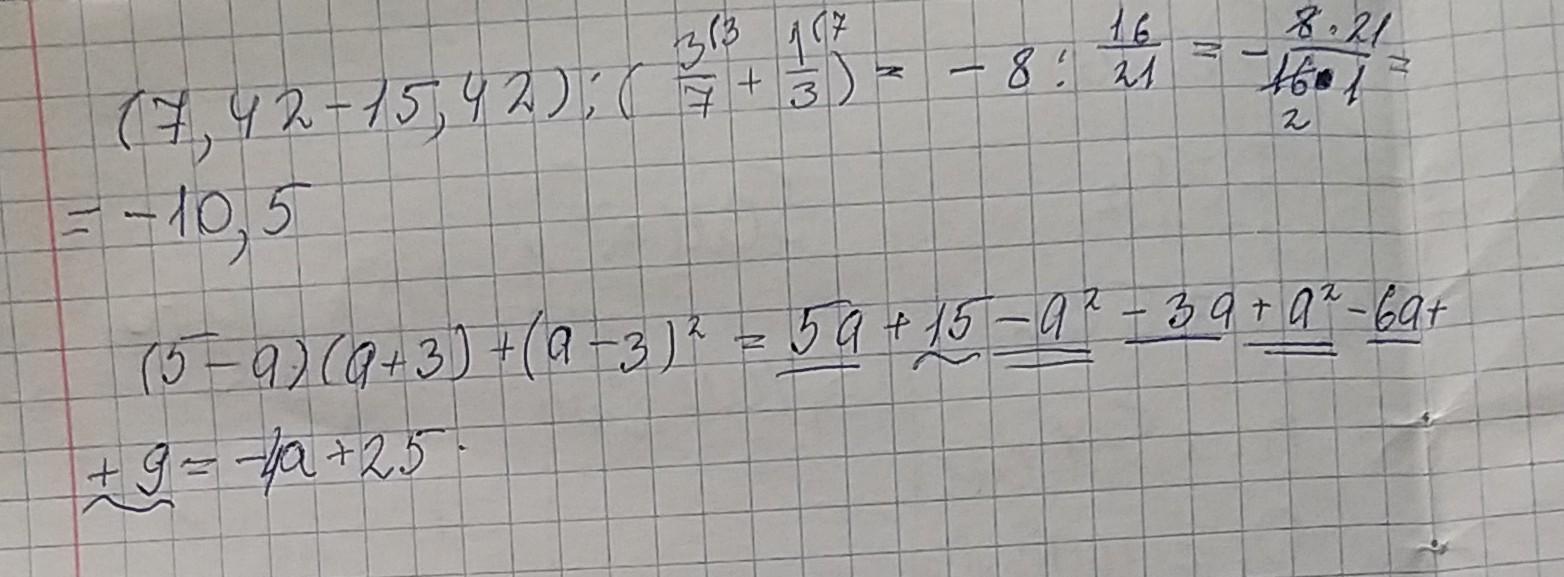 (7,42-15,42):(3⁽³/7 + 1⁽⁷/3) = -8 : 16/21 = - 8·21/16·1 =
2
= -10,5
(5-a)(a+3)+(a-3)² = 5a+15-a²-3a+a²-6a+
+9=-4a+25.